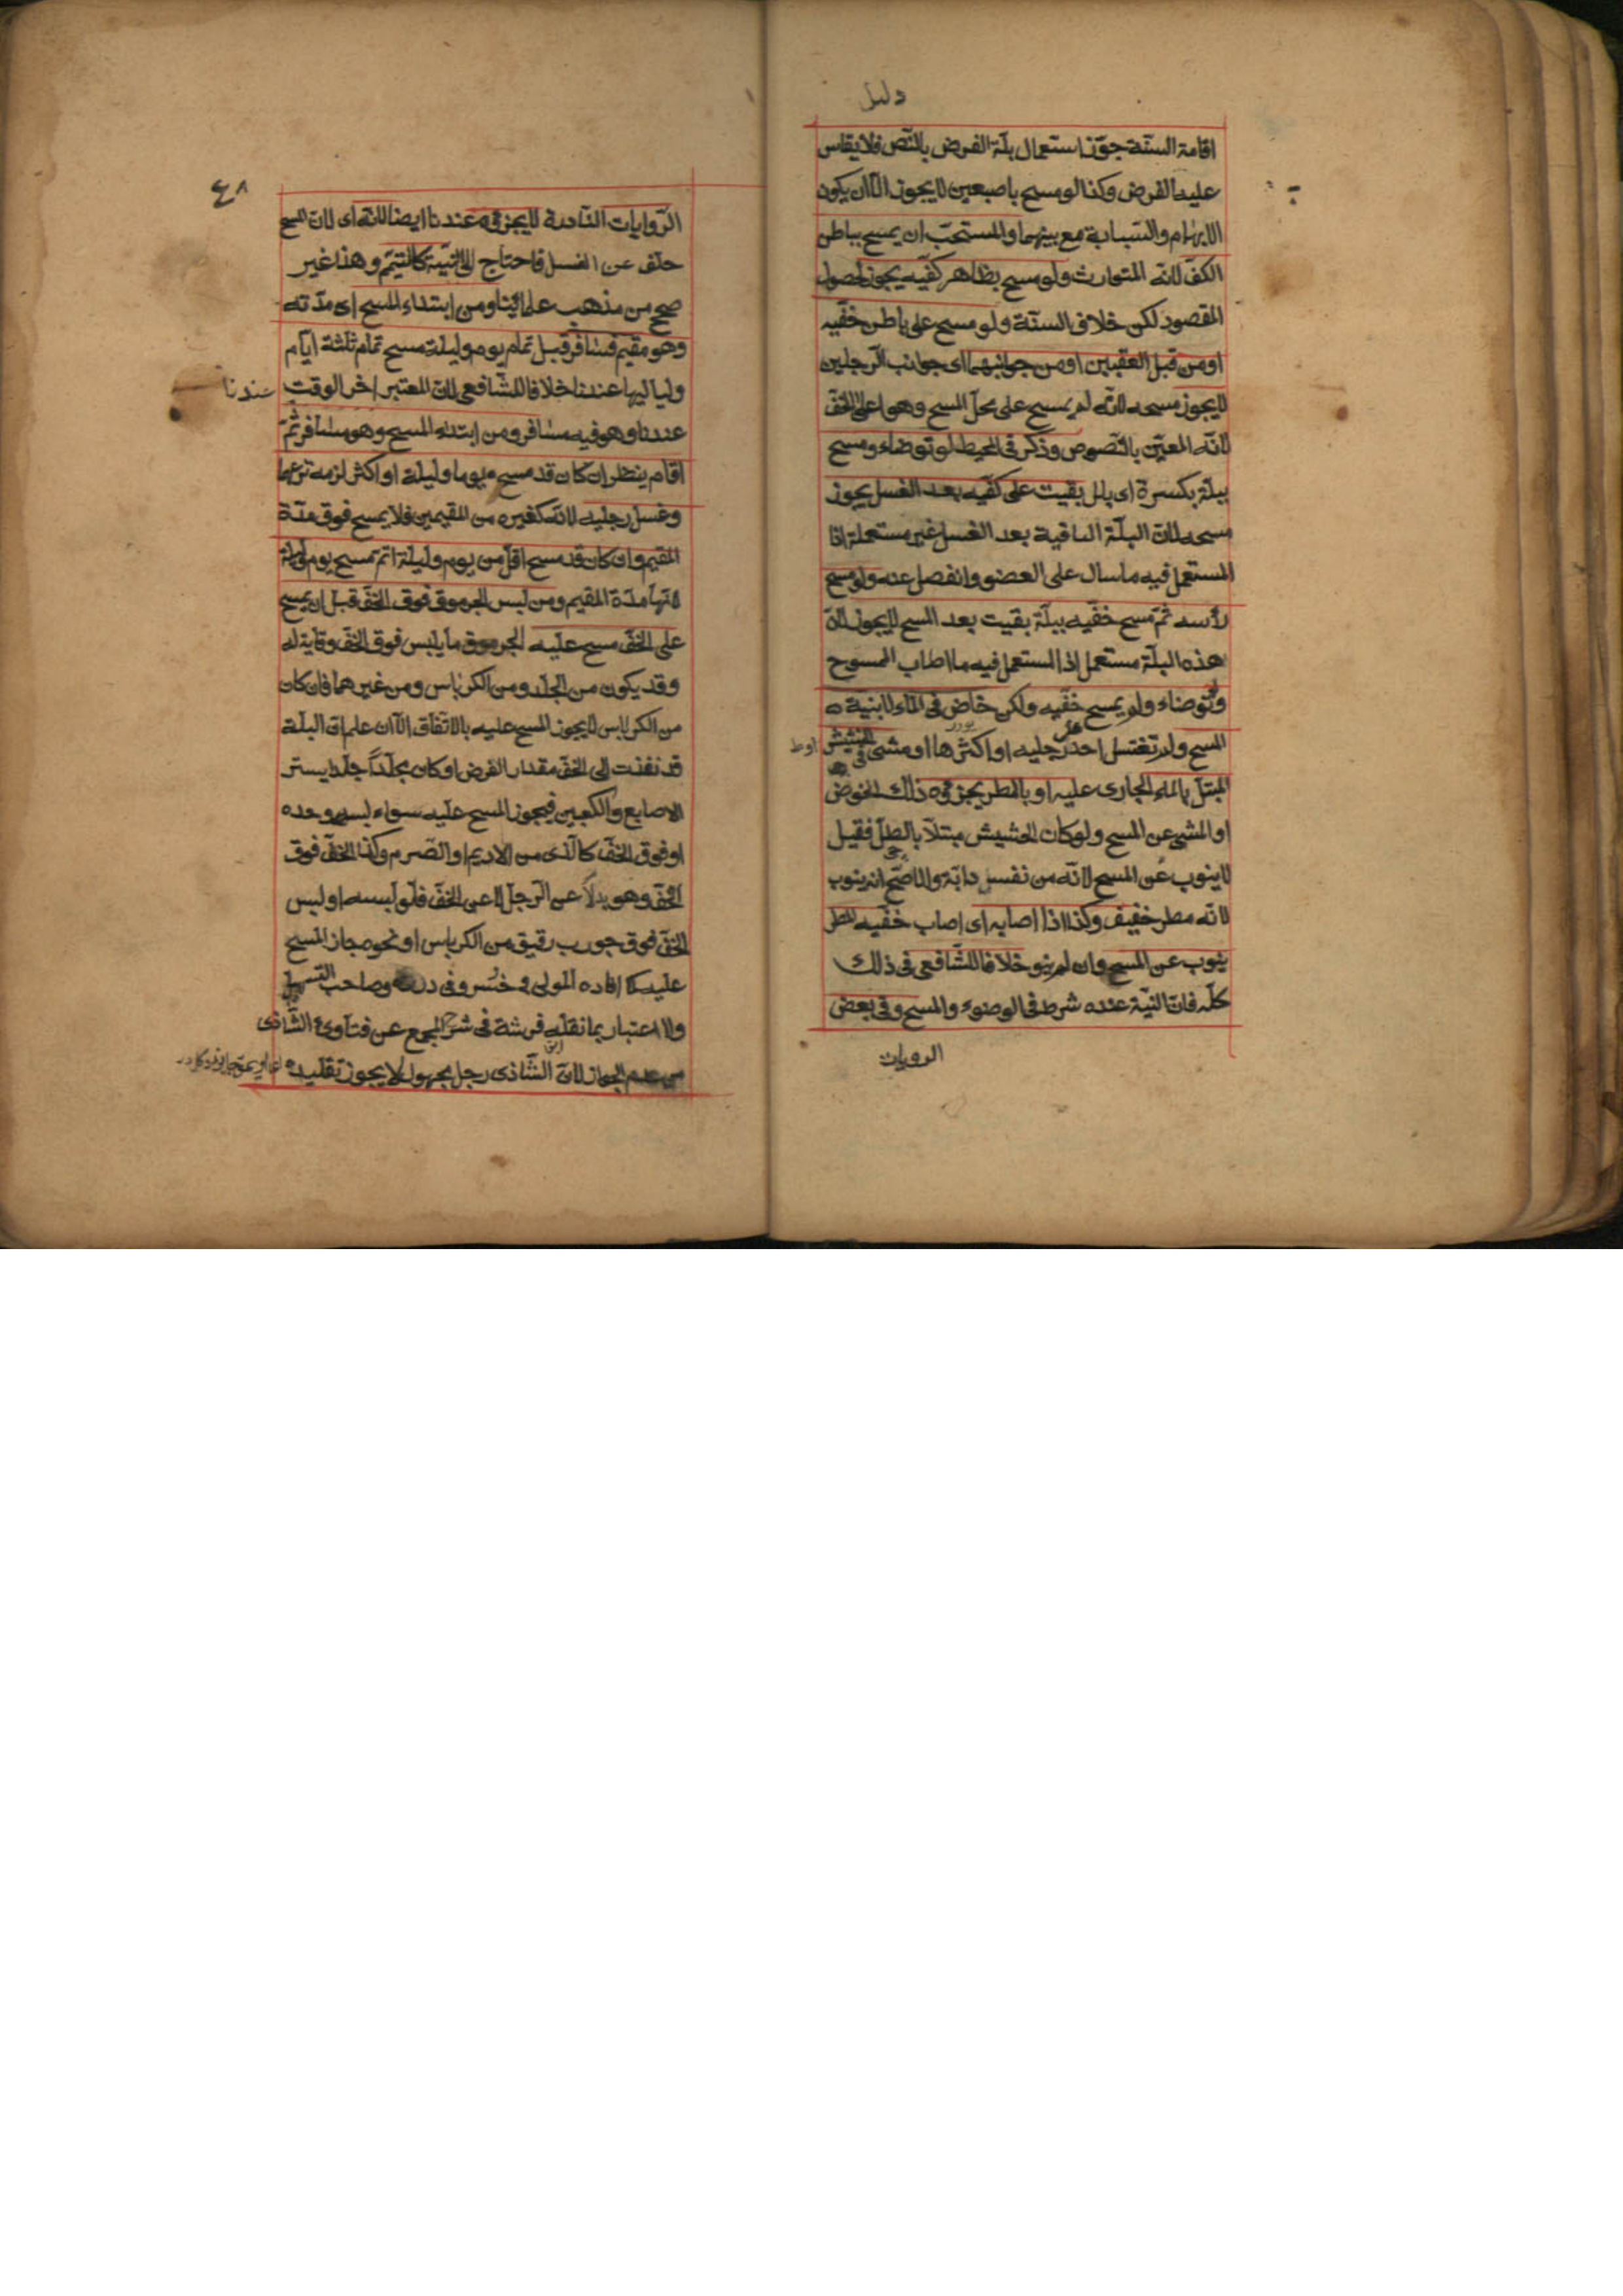 دليل
اقامة السنّة جوّزنا استعمال بلّة الفرض بالنّص فلا يقاس
عليه الفرض وكذا لو مسح باصبعين لا يجوز الّا ان يكون
الابهام والسّبابة مع بينهما والمستحبّ ان يمسح بباطن
الكفّ لانّه المتوارث ولو مسح بظاهر كفّيه يجوز لحصول
المقصود لكن خلاف السنّة ولو مسح على باطن خفّيه
او من قبل العقبين او من جوانبهما اى جوانب الرّجلين
لا يجوز مسحه لانّه لم يمسح على محلّ المسح وهو اعلى الخفّ
لانّه المعيّن بالنّصوص وذكر فى المحيط لو توضاء ومسح
ببلّة بكسرة اى بلل بقيت على كفّيه بعد الغسل يجوز
مسحه لانّ البلّة الباقية بعد الغسل غير مستعملة اذا
المستعمل فيه ما سال على العضو وانفصل عنه ولو مسح
رأسه ثمّ مسح خفّيه ببلّة بقيت بعد المسح لا يجوز لانّ
هذه البلّة مستعمل اذا المستعمل فيه ما اصاب الممسوح
ولو توضاء ولم يمسح خفّيه ولكن خاض فى الماء لا بنية
المسح ولم تغتسل احد رجليه او اكثرها او مشى فى الحشيش
المبتلّ بالماء الجارى عليه او بالمطر يجزئه ذلك الخوض
او المشى عن المسح ولو كان الحشيش مبتلّا بالطلّ فقيل
لا ينوب عن المسح لانّه من نفس دابّة والاصحّ انه ينوب
لانّه مطر خفيف وكذا اذا اصابه اى اصاب خفّيه المطر
ينوب عن المسح وان لم ينو خلافا للشّافعى فى ذلك
كلّه فانّ النيّة عنده شرط فى الوضوء والمسح وفى بعض
الرويات
٤٨
الرّوايات النّادرة لا يجزئه عندنا ايضا لانّه اى لانّ المسح
خلف عن الغسل فاحتاج الى النّية كالتيمّم وهذا غير
صحيح من مذهب علمائنا ومن ابتداء المسح اى مدّته
وهو مقيم فسافر قبل تمام يوم وليلة مسح تمام ثلثة ايّام
ولياليها عندنا خلافا للشّافعى لانّ المعتبر اخر الوقت
عندنا
عندنا وهو فيه مسافر ومن ابتداء المسح وهو مسافر ثمّ
اقام ينظر ان كان قد مسح يوما وليلة او اكثر لزمه نزعهما
وغسل رجليه لانّه كغيره من المقيمين فلا يمسح فوق مدّة
المقيم وان كان قد مسح اقلّ من يوم وليلة اتمّ مسح يوم وليلة
لانّها مدّة المقيم ومن لبس الجرموق فوق الخفّ قبل ان يمسح
على الخفّ مسح عليه الجرموق ما يلبس فوق الخفّ وقاية له
وقد يكون من الجلد ومن الكرباس ومن غيرهما فان كان
من الكرباس لا يجوز المسح عليه بالاتّفاق الّا ان علم انّ البلّة
قد نفذت الى الخفّ مقدار الفرض او كان مجلّداً جلدا يستر
الاصابع والكعبين فيجوز المسح عليه سواء لبسه وحده
او فوق الخفّ كالّذى من الاديم او الصّرم وكذا الخفّ فوق
الخفّ وهو بدلاً عن الرّجل لا عن الخفّ فلو لبسه او لبس
الخفّ فوق جورب رقيق من الكرباس او نحوه جاز المسح
عليه كما افاده المولى خسرو فى درره وصاحب التسهيل
ولا اعتبار بما نقله ابن فرشة فى شرح المجمع عن فتاوى الشّاذى
من عدم الجواز لانّ الشّاذى رجل مجهول لا يجوز تقليده